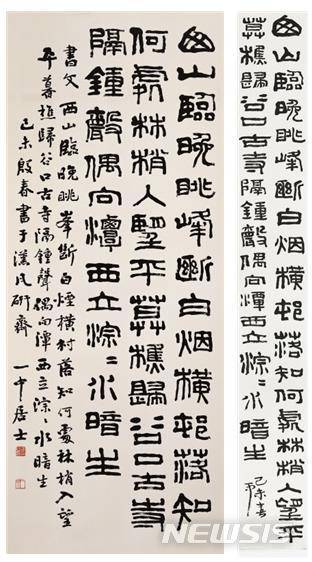 西山臨晚眺峰斷白烟橫邨落知
何處林梢入望平莫樵歸谷口古寺
隔鍾聲偶向潭西立淙〻水暗生
西山臨晚眺峯斷白煙橫村落知何處林梢入望
平暮樵歸谷口古寺隔鍾聲偶向潭西立淙〻水暗生
己未殷春書于漢民研齋 一中居士
西山臨晚眺峰斷白烟橫邨落知何處林梢入望平
莫樵歸谷口古寺隔鍾聲偶向潭西立淙〻水暗生
己未春
NEWSIS